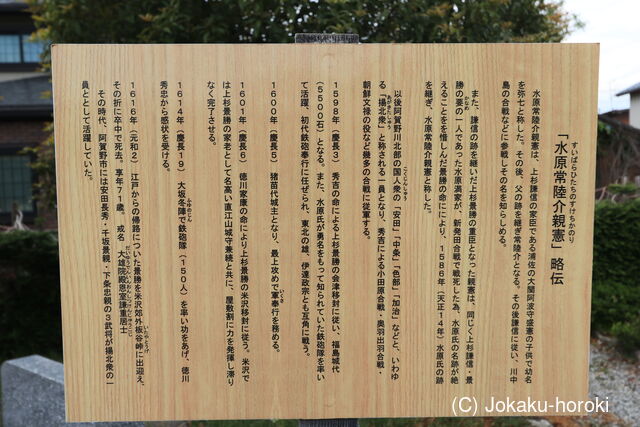 「水原常陸介親憲」略伝
すいばらひたちのすけちかのり
水原常陸介親憲は、上杉謙信の家臣である浦佐の大関阿波守盛憲の子供で幼名
を弥七と称した。その後、父の跡を継ぎ常陸介となる。その後謙信に従い、川中
島の合戦などに参戦しその名を知らしめる。
また、謙信の跡を継いだ上杉景勝の重臣となった親憲は、同じく上杉謙信・景
勝の要の一人であった水原満家が、新発田合戦で戦死した為、水原氏の名跡が絶
かなめ
えることを惜しんだ景勝の命により、1586年（天正14年）水原氏の跡
を継ぎ、水原常陸介親憲と称した。
以後阿賀野川北部の国人衆の「安田」「中条」「色部」「加治」などと、いわゆ
こくじんしゅう
る「揚北衆」と称される一員となり、秀吉による小田原合戦・奥羽出羽合戦・
あがきたしゅう
朝鮮文禄の役など幾多の合戦に従軍する。
1598年（慶長3）秀吉の命による上杉景勝の会津移封に従い、福島城代
（5500石）となる。また、水原氏が勇名をもって知られていた鉄砲隊を率い
て活躍、初代鉄砲奉行に任ぜられ、東北の雄、伊達政宗とも互角に戦う。
1600年（慶長5）猪苗代城主となり、最上攻めで軍奉行を務める。
いくさ
1601年（慶長6）徳川家康の命により上杉景勝の米沢移封に従う。米沢で
は上杉景勝の家老として名高い直江山城守兼続と共に、屋敷割に力を発揮し滞り
なく完了させる。
1614年（慶長19）大坂冬陣で鉄砲隊（150人）を率い功をあげ、徳川
ふゆのじん
秀忠から感状を受ける。
1616年（元和2）江戸からの帰路についた景勝を米沢郊外板谷峠に出迎え、
いたやとうげ
その折に卒中で死去。享年71歳。戒名 大雄院殿恩室謙重居士
その時代、阿賀野市には安田長秀・千坂景親・下条忠親の3武将が揚北衆の一
員として活躍していた。
(C) Jokaku-horoki